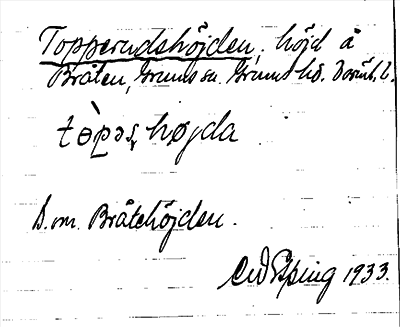 Topperudshöjden, höjd å
Bråten, Grums sn. Grums hd. Värml. l.
tòpəɹ højda
D. om. Bråtehöjden.
Epping 1933.